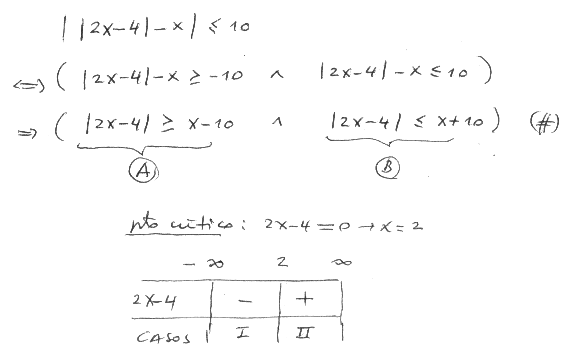 ||2x-4|-x| ≤ 10
<=> ( |2x-4|-x ≥ -10 ∧ |2x-4|-x ≤ 10 )
=> ( |2x-4| ≥ x-10 ∧ |2x-4| ≤ x+10 ) (#)
A B
pto crítico: 2x-4=0 → x=2
-∞ 2 ∞
2x-4 - +
CASOS I II